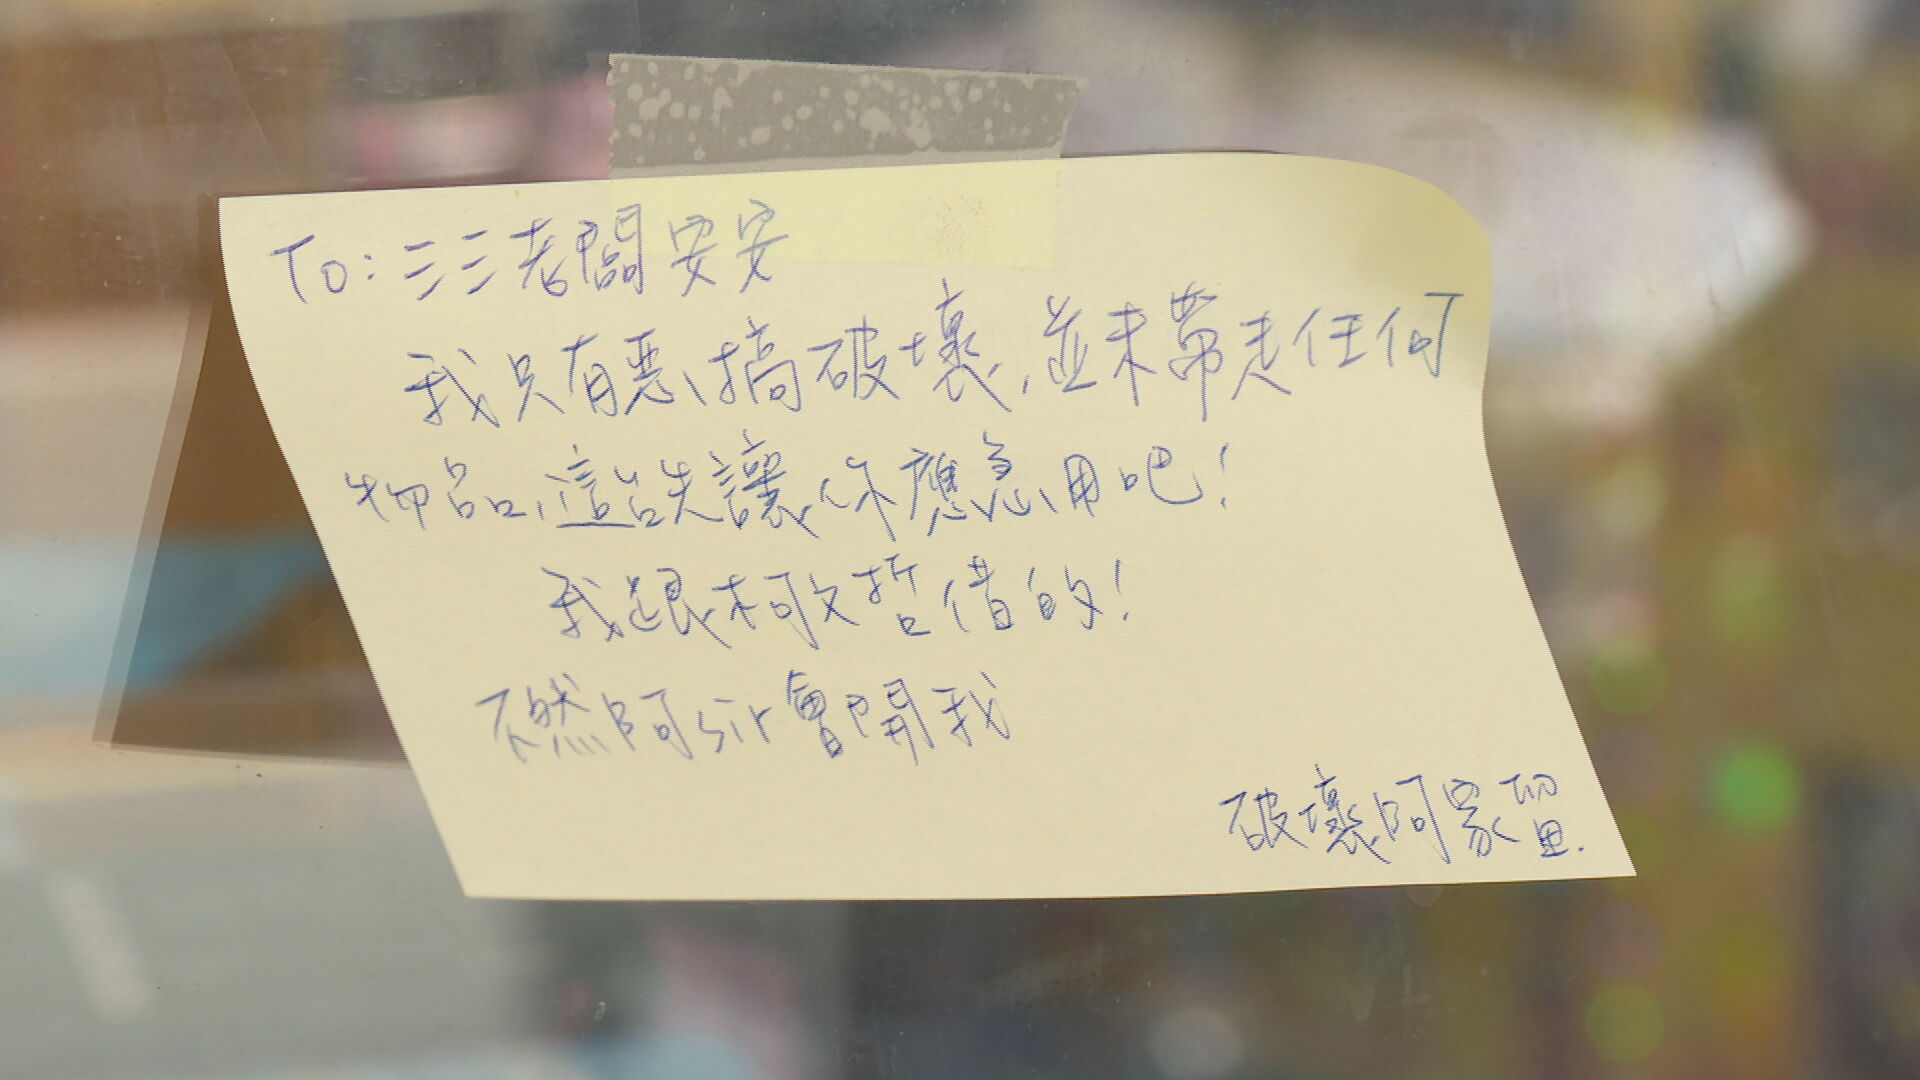 To:三三老闆安安
我只有惡搞破壞,並未帶走任何
物品,這些先讓你應急用吧!
我跟柯文哲借的!
不然阿sir會開我
破壞阿家留.